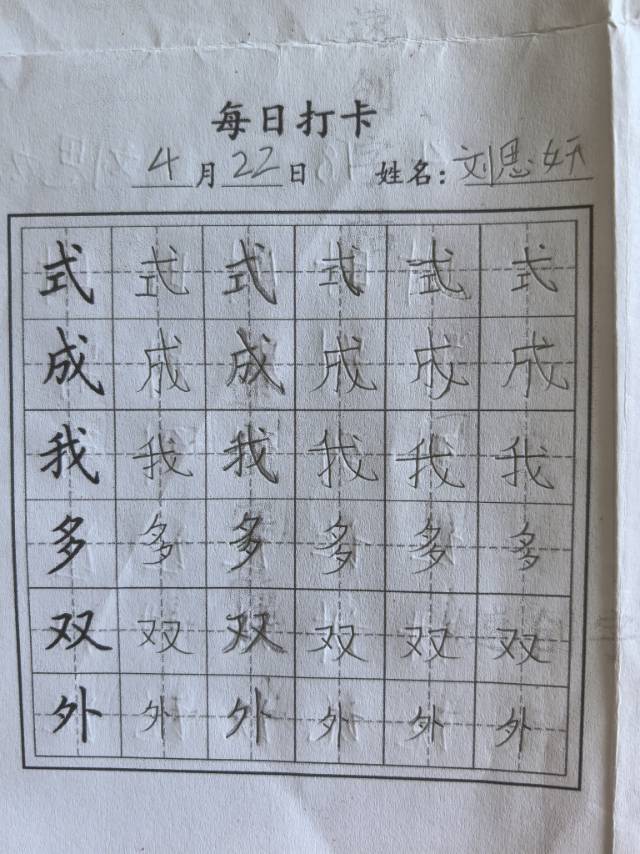 每日打卡
4月22日 姓名:刘思妍
式 式 式 式 式 式
成 成 成 成 成 成
我 我 我 我 我 我
多 多 多 多 多 多
双 双 双 双 双 双
外 外 外 外 外 外